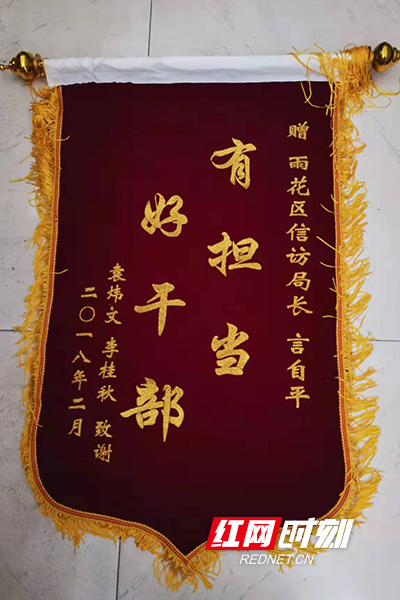 赠 雨花区信访局长 言自平
有担当
好干部
袁炜文 李桂秋 致谢
二〇一八年二月
红网时刻
REDNET.CN